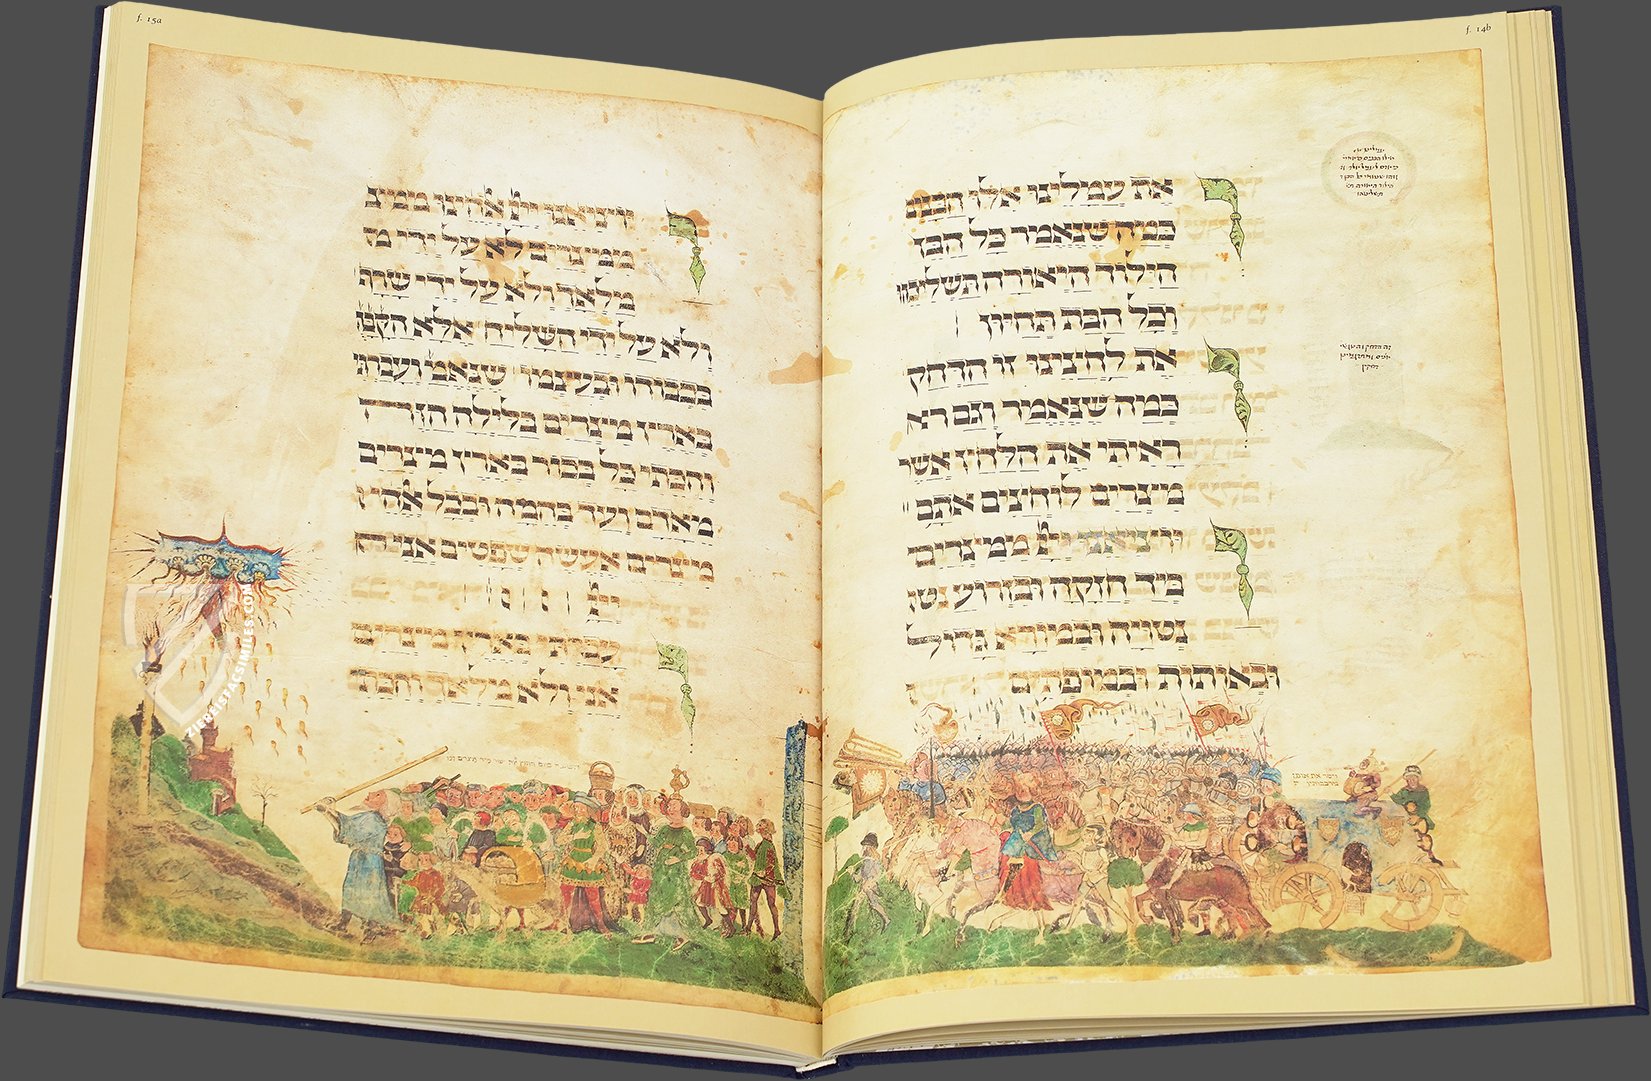 f. 14b
את עמלינו אלו הבנים
כמה שנאמר כל הבן
הילוד היאורה תשליכוהו
וכל הבת תחיון
את לחצינו זו הדחק
כמה שנאמר וגם רא
ראיתי את הלחץ אשר
מצרים לוחצים אתם
ויוציאנו ממצרים
ביד חזקה ובזרוע נטו
נטויה ובמורא גדול
ובאותות ובמופתים
f. 15a
ויוציאנו ממצ
ממצרים לא על ידי מל
מלאך ולא על ידי שרף
ולא על ידי השליח אלא הקב
בכבודו ובעצמו שנאמ ועברתי
בארץ מצרים בלילה הזה
והכתי כל בכור בארץ מצרים
מאדם ועד בהמה ובכל אלהי
מצרים אעשה שפטים אני
עברתי בארץ מצרים
אני ולא מלאך והכתי
ZIEREISFACSIMILES.COM